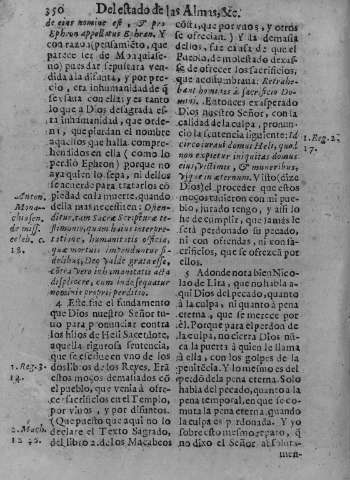 350 Del estado de las Almas, &c.
de eius nomine est, & pro
Ephron appellatus Ephran. Y
con razon (pensamiéto, que
parece ser de Moronquise-
no) pues dar sepultura vendi-
da à la difunta, y por pre-
cio, era inhumanidad de q̃
se vsaua con ella; y es tanto
lo que a Dios desagrada es-
ta inhumanidad, que orde-
na, que pierdan el nombre
aquellos que halla compre-
hendidos en ella (como lo
perdio Ephron) porque no
aya quien lo sepa, ni dellos
se acuerde para tratarlos cõ
piedad en la muerte, quando
della mas necessiten: Osten-
ditur, tam Sacræ Scripturæ te-
stimonio, quam huius interpre-
tatione, humanitatis officia,
quæ mortuis impenduntur fi-
delibus, Deo valde grata esse,
côtra verò inhumanitatis acta
displicere, cum inde sequatur
nominis proprij perditio.
4 Æste fue el fundamento
que Dios nuestro Señor tu-
uo para pronunciar contra
los hijos de Heli Sacerdote,
aquella rigurosa sentencia,
que se escriue en vno de los
dos libros de los Reyes. Erá
estos moços demasiados cõ
el pueblo, que venia à ofre-
cer sacrificios en el Templo,
por viuos, y por difuntos.
(Que puesto que aqui no lo
declare el Texto Sagrado,
del libro 2. de los Macabeos
Anton.
de miss.
celeb. c.
18.
1. Reg. 3.
14.
2. Mach.
12. 46.
cõsta, que por vnos, y otros
se ofrecian.) Y la demasia
dellos, fue causa de que el
Pueblo, de molestado dexas-
se de ofrecer los sacrificios,
que acostumbraua: Retrahe-
bant homines à sacrificio Do-
mini. Entonces exasperado
Dios nuestro Señor, con la
calidad de la culpa, pronun-
ciò la sentencia siguiente: Id
circo iuraui domui Heli, quod
non expietur iniquitas domus
eius, victimis, & muneribus,
vsque in æternum. Visto (dize
Dios) el proceder que estos
moços tuuieron con mi pue-
blo, jurado tengo, y assi lo
he de cumplir, que jamàs le
serà perdonado su pecado,
ni con ofrendas, ni con sa-
crificios, que se ofrezcã por
ellos.
1. Reg. 2.
17.
5 Adonde nota bien Nico-
lao de Lira, que no habla a-
qui Dios del pecado, quanto
à la culpa, ni quanto à pena
eterna, que se merece por
èl. Porque para el perdon de
la culpa, no cierra Dios nũ-
ca la puerta à quien le llama
à ella, con los golpes de la
penitécia. Y lo mesmo es del
perdõ de la pena eterna. Solo
habla del pecado, quanto à la
pena temporal, en que se co-
muta la pena eterna, quando
la culpa es perdonada. Y yo
sobre esto mesmo reparo, q̃
no dixo el Señor absoluta-
men-